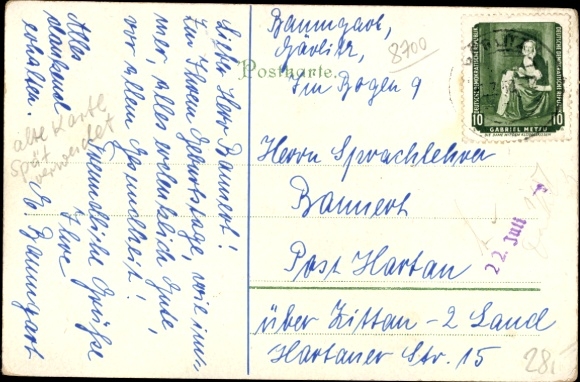 Lieber Herr Bannert!
Zu Ihrem Geburtstage, wie im-
mer, alles erdenklich Gute,
vor allem Gesundheit!
Freundliche Grüße
Ihre
M. Baumgart
Alles
dankend
erhalten.
alte Karte
spät
verwendet
Baumgart,
Görlitz,
Am Bogen 9
8700
Postkarte.
Herrn Sprachlehrer
Bannert
Post Hartau
über Zittau - 2 Land
Hartauer Str. 15
DEUTSCHE DEMOKRATISCHE REPUBLIK
DEUTSCHE DEMOKRATISCHE REPUBLIK
10
GABRIEL METSU
10
22. Juli
28,-